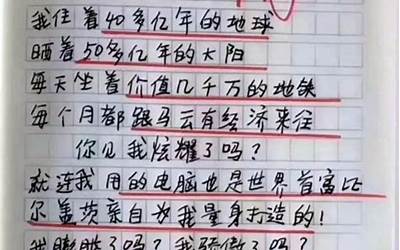 我住着40多亿年的地球
晒着50多亿年的太阳
每天坐着价值几千万的地铁
每个月都跟马云有经济来往
你见我炫耀了吗?
就连我用的电脑也是世界首富比
尔盖茨亲自为我量身打造的!
我膨胀了吗?我骄傲了吗?